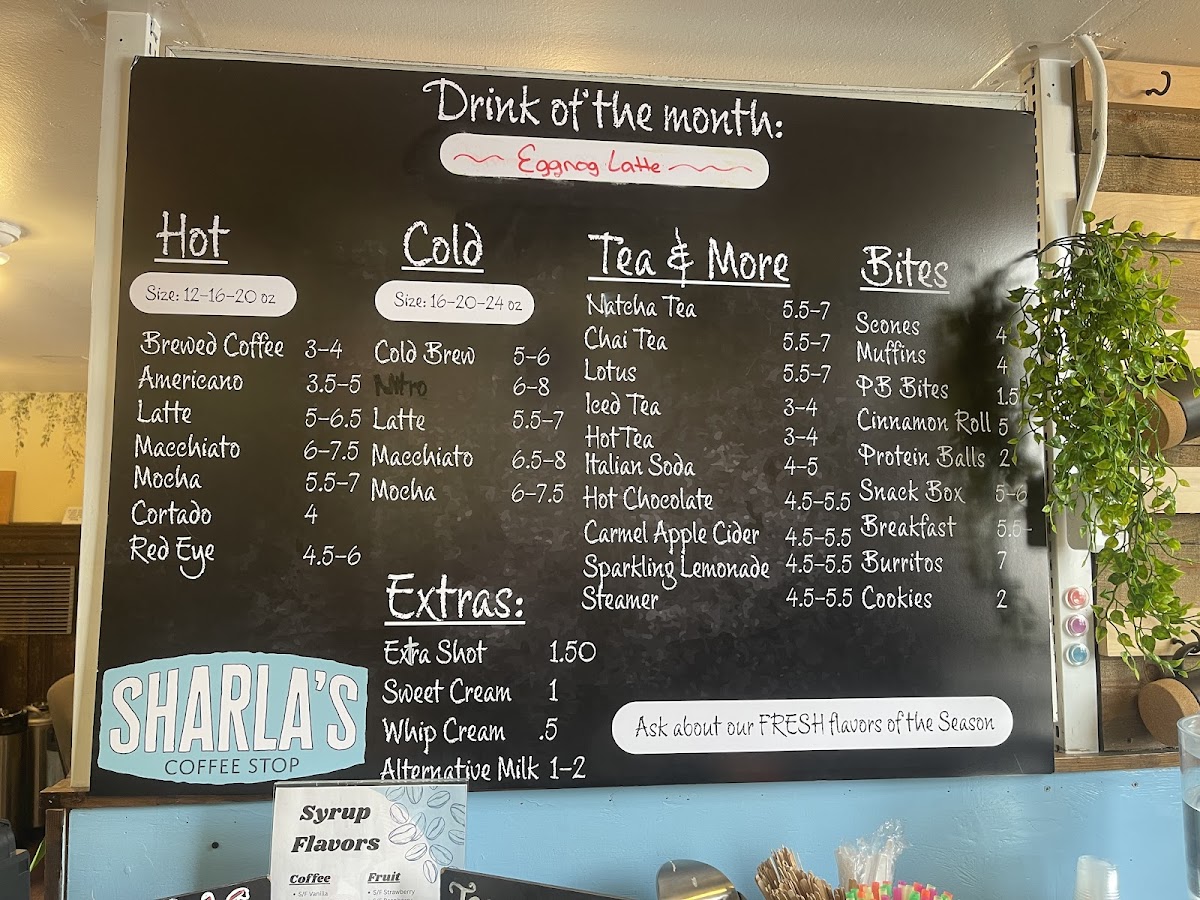 Drink of the month:
Eggnog Latte
Hot
Size: 12-16-20 oz
Brewed Coffee 3-4
Americano 3.5-5
Latte 5-6.5
Macchiato 6-7.5
Mocha 5.5-7
Cortado 4
Red Eye 4.5-6
Cold
Size: 16-20-24 oz
Cold Brew 5-6
Nitro 6-8
Latte 5.5-7
Macchiato 6.5-8
Mocha 6-7.5
Extras:
Extra Shot 1.50
Sweet Cream 1
Whip Cream .5
Alternative Milk 1-2
Tea & More
Natcha Tea 5.5-7
Chai Tea 5.5-7
Lotus 5.5-7
Iced Tea 3-4
Hot Tea 3-4
Italian Soda 4-5
Hot Chocolate 4.5-5.5
Carmel Apple Cider 4.5-5.5
Sparkling Lemonade 4.5-5.5
Steamer 4.5-5.5
Bites
Scones 4
Muffins 4
PB Bites 1.5
Cinnamon Roll 5
Protein Balls 2
Snack Box 5-6
Breakfast 5.5-
Burritos 7
Cookies 2
Ask about our FRESH flavors of the Season
SHARLA'S
COFFEE STOP
Syrup
Flavors
Coffee
S/F Vanilla
Fruit
S/F Strawberry